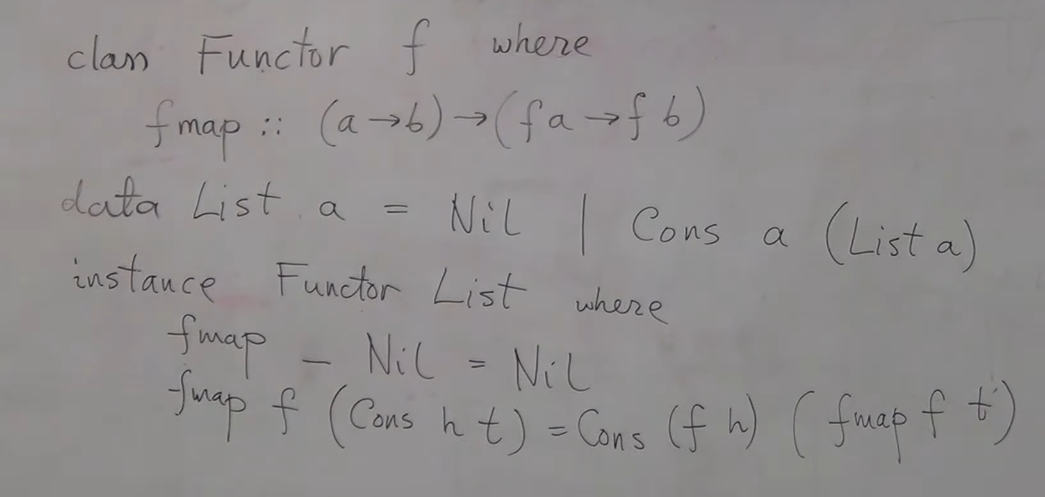 class Functor f where
fmap :: (a → b) → (f a → f b)
data List a = Nil | Cons a (List a)
instance Functor List where
fmap _ Nil = Nil
fmap f (Cons h t) = Cons (f h) (fmap f t)